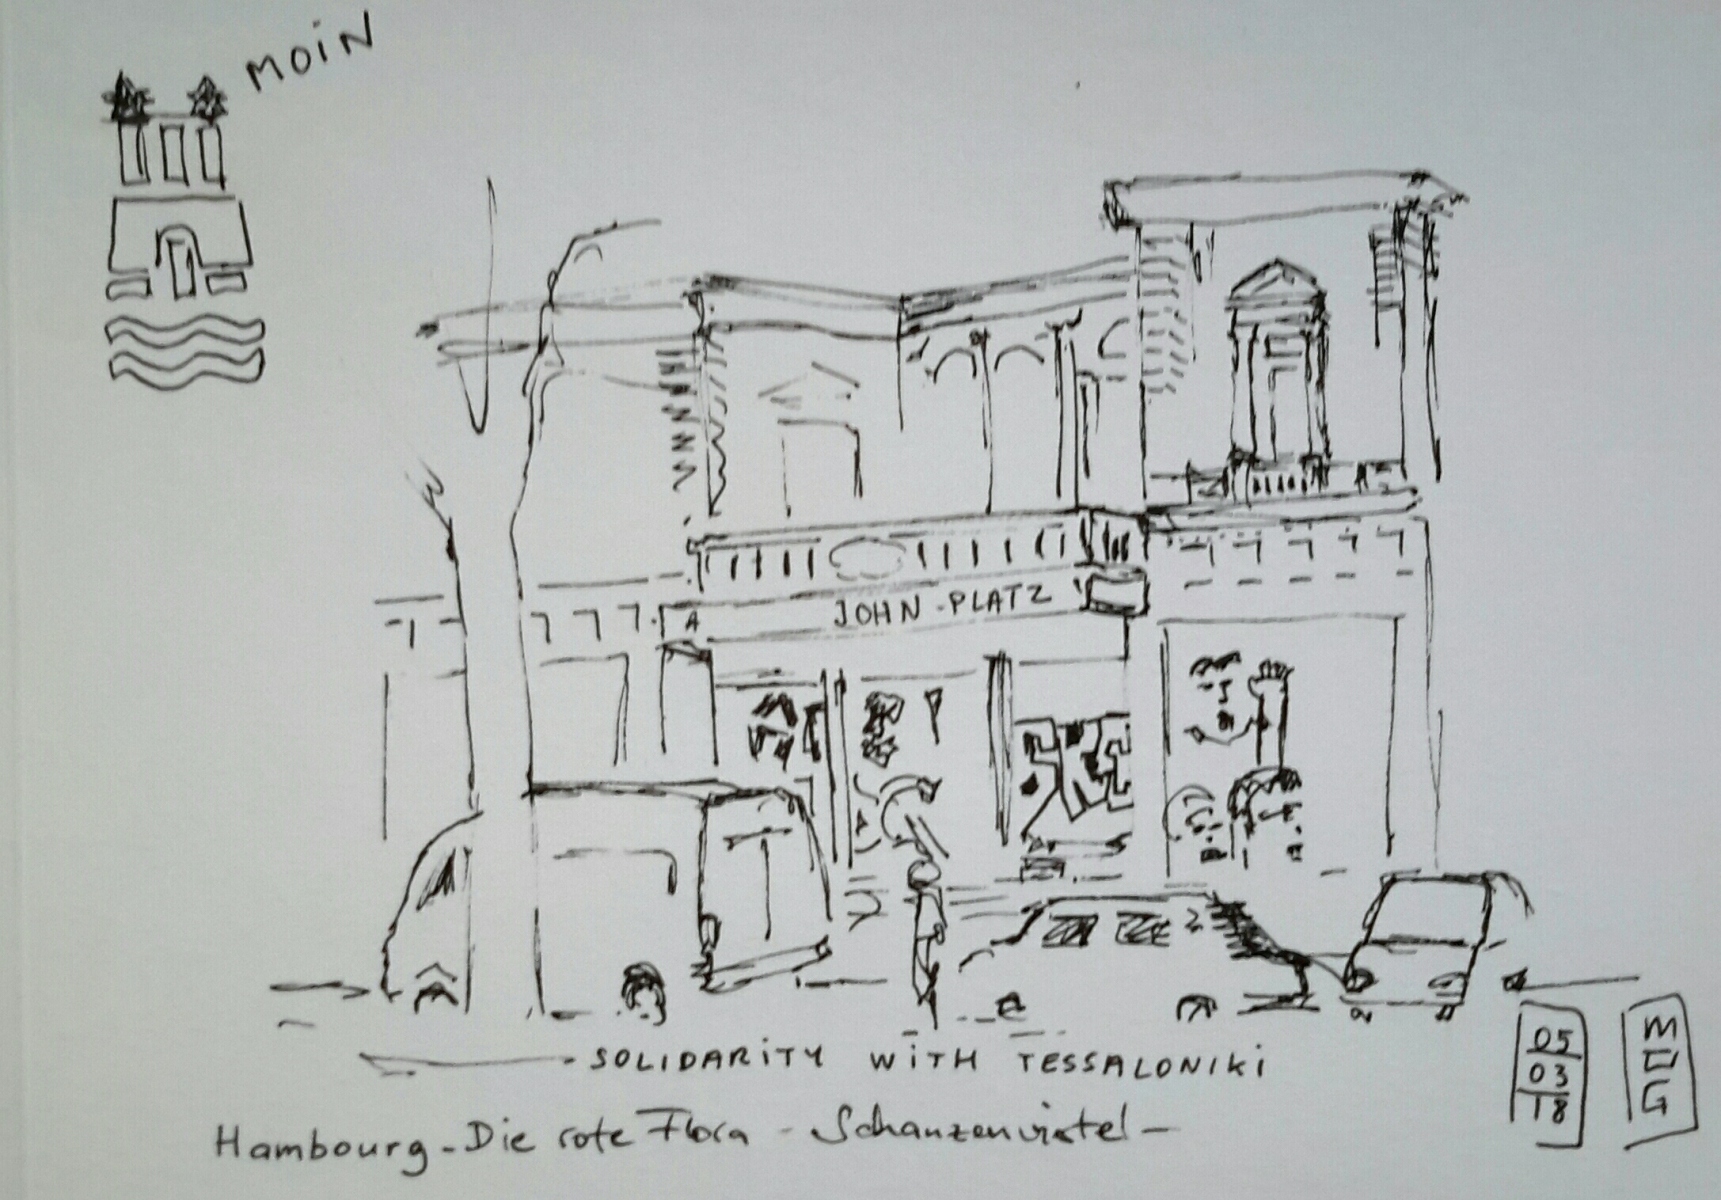 MOIN
A
JOHN-PLATZ
SOLIDARITY WITH TESSALONIKI
Hambourg-Die rote Flora - Schanzenviertel-
05
03
18